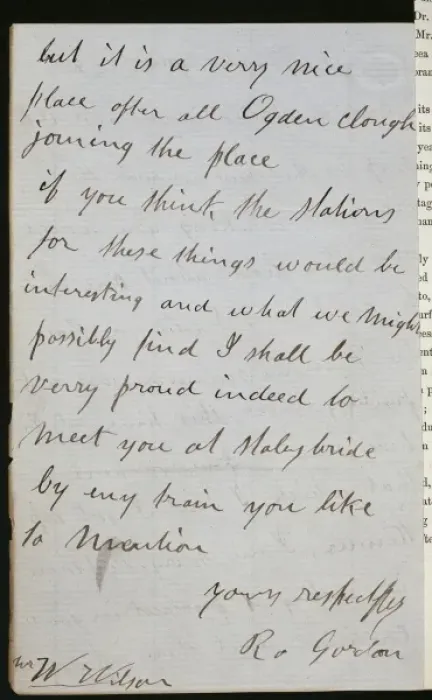 but it is a verry nice
place after all Ogden clough
joining the place
if you think the stations
for these things would be
interesting and what we might
possibly find I shall be
verry proud indeed to
meet you at stalybridge
by eny train you like
to mention
yours respectfly
Ro Gordon
Mr W Wilson